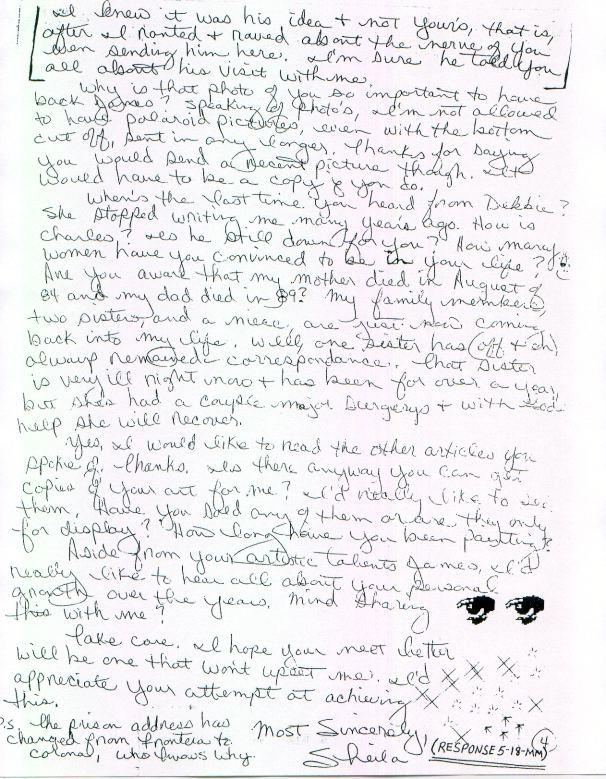 I knew it was his idea + not yours, that is,
after I ranted + raved about the nerve of you
even sending him here. I'm sure he told you
all about his visit with me.
Why is that photo of you so important to have
back James? Speaking of photo's, I'm not allowed
to have polaroid pictures, even with the bottom
cut off, sent in any longer. Thanks for saying
you would send a recent picture though. It
would have to be a copy if you do.
When's the last time you heard from Debbie?
She stopped writing me many years ago. How is
Charles? Is he still down for you? How many
women have you convinced to be in your life?
Are you aware that my mother died in August of
84 and my dad died in 89? My family members,
two sisters, and a niece, are just now coming
back into my life. Well, one sister has (off + on)
always remained correspondance. That sister
is very ill right now + has been for over a year,
but she's had a couple major surgerys + with God's
help she will recover.
Yes, I would like to read the other articles you
spoke of. Thanks. Is there anyway you can get
copies of your art for me? I'd really like to see
them. Have you sold any of them or are they only
for display? How long have you been painting?
Aside from your artistic talents James, I'd
really like to hear all about your personal
growth over the years. Mind sharing
this with me?
Take care. I hope your next letter
will be one that won't upset me. I'd
appreciate your attempt at achieving
this.
Most Sincerely,
Sheila
P.S. the prison address has
changed from Frontera to
Corona, who knows why.
(RESPONSE 5-18-MM)
4